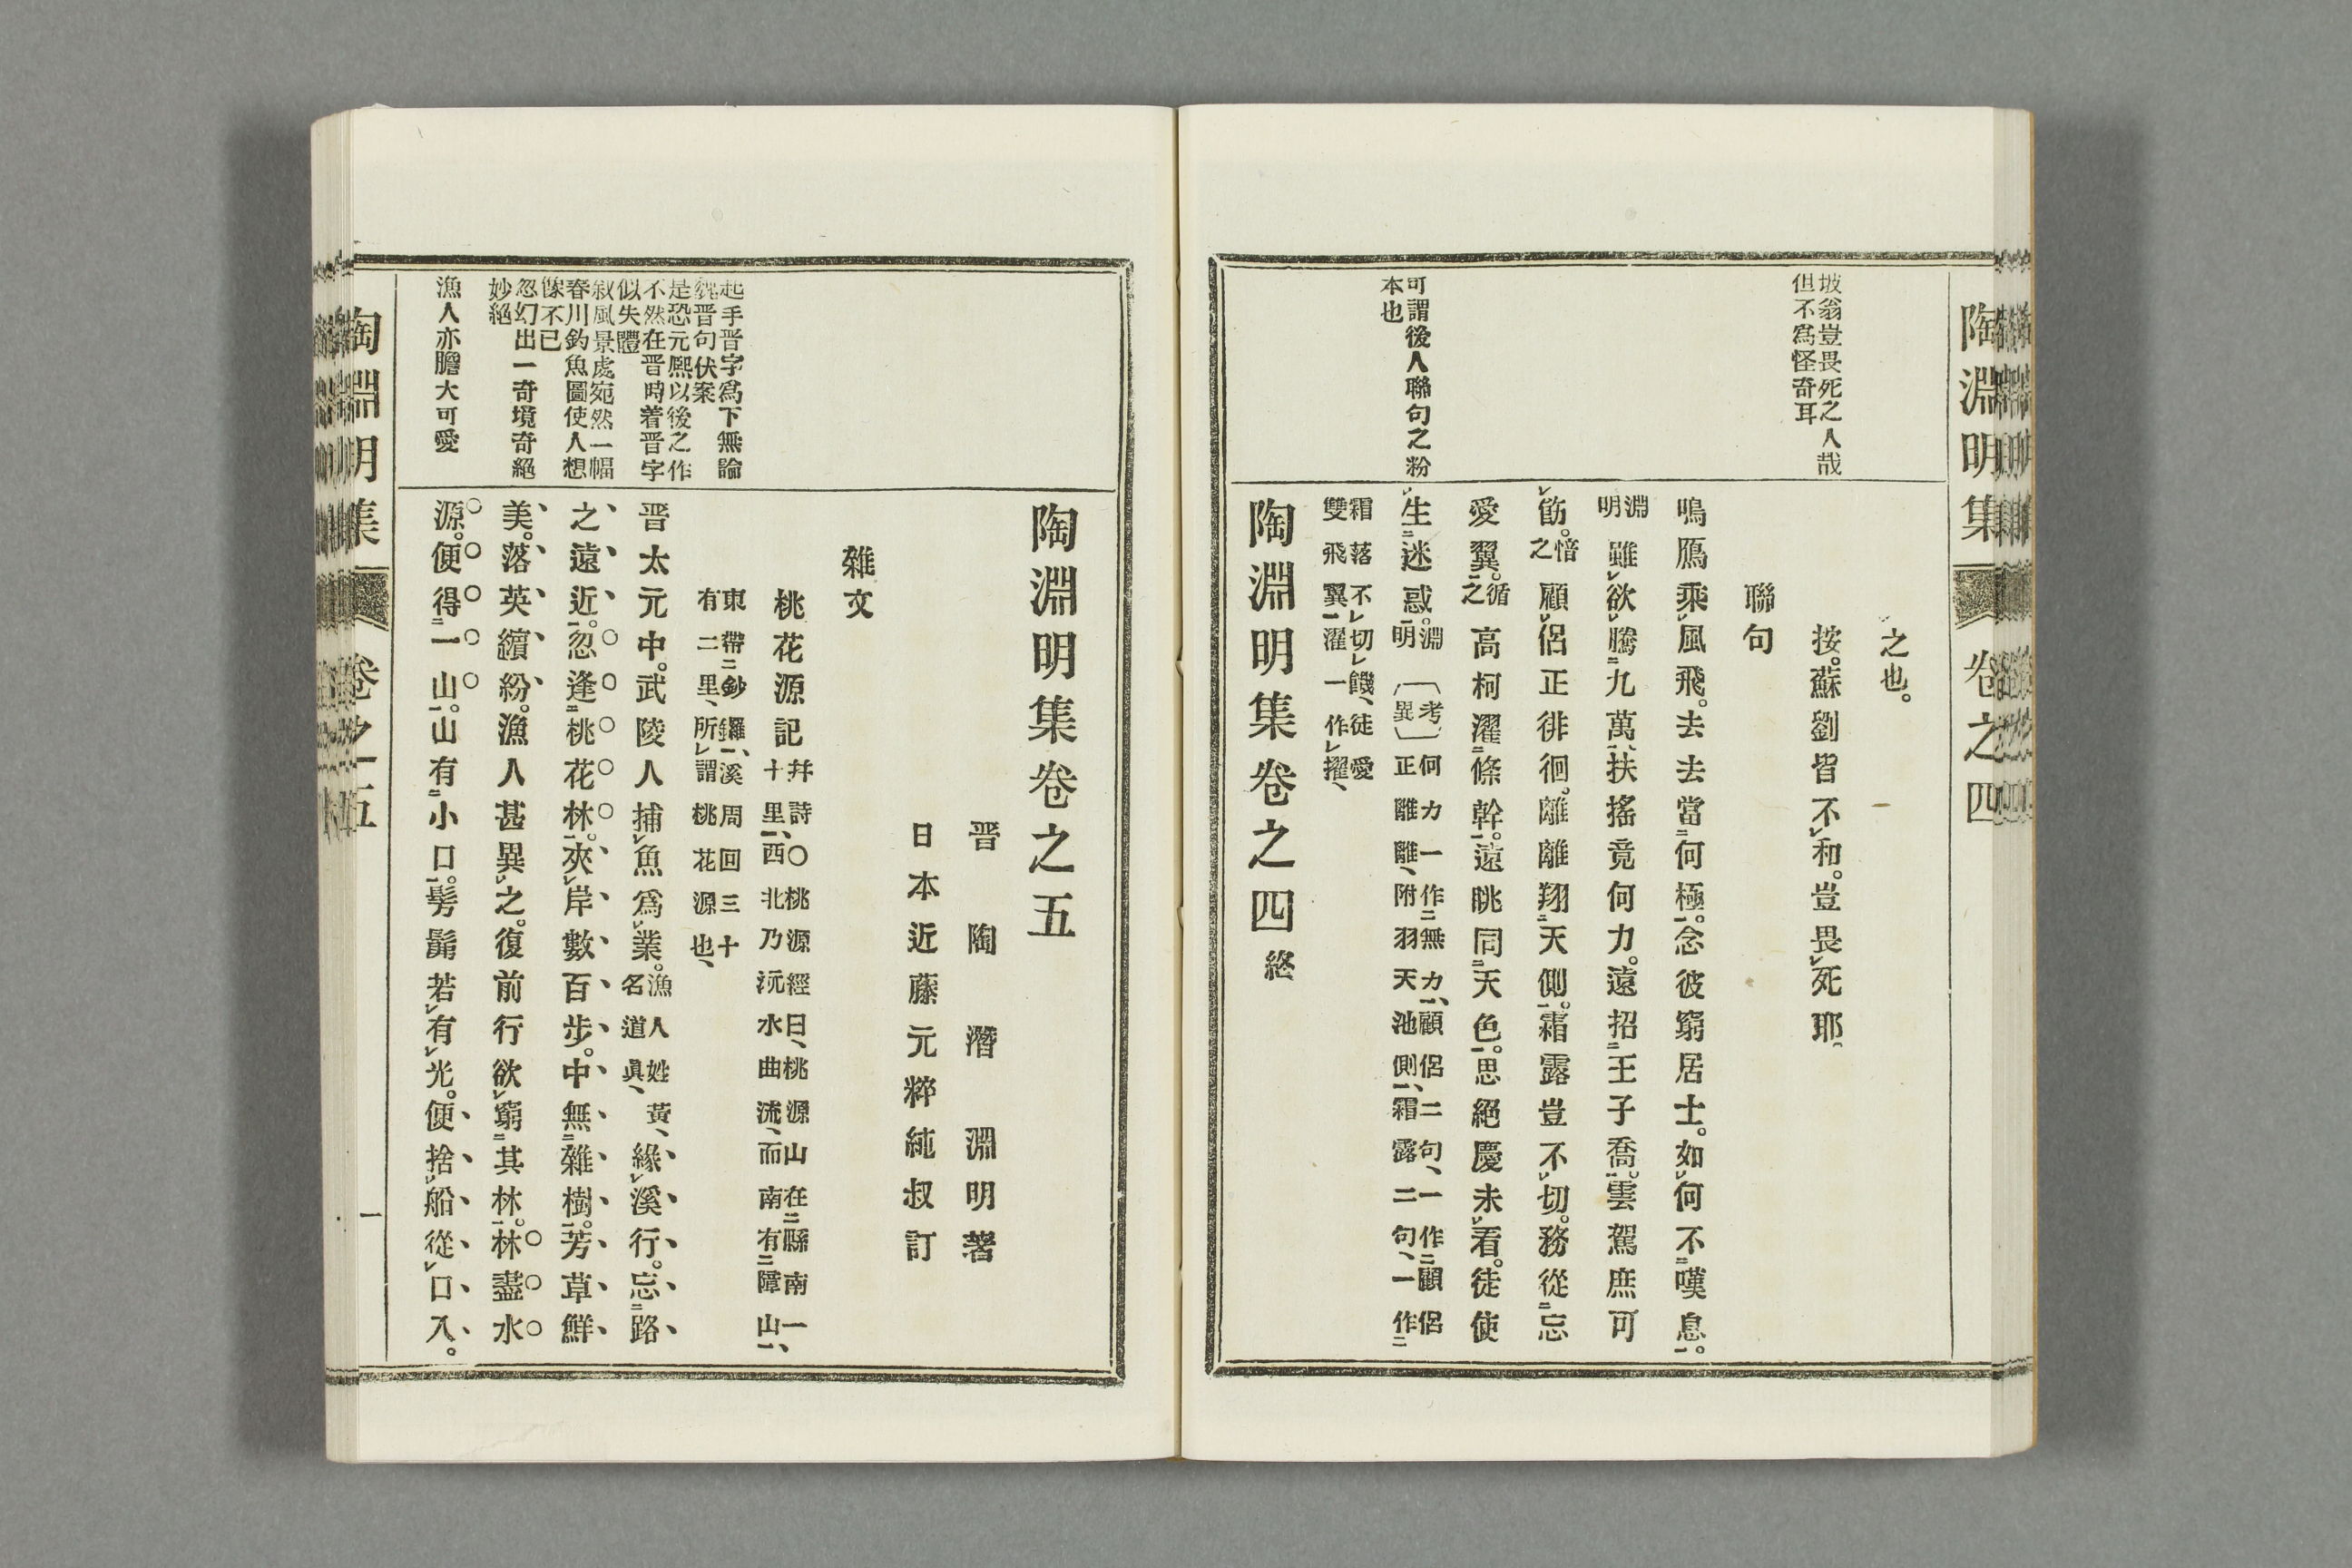 陶淵明集 卷之四
坡翁豈畏死之人哉
但不爲怪奇耳
之也。
按。蘇劉皆不㆑和。豈畏㆑死耶。
聯句
鳴鴈乘㆑風飛。去去當㆓何極㆒。念彼窮居士。如㆑何不㆓嘆息㆒。
淵明雖㆑欲㆑騰㆓九萬㆒、扶搖竟何力。遠招㆓王子喬㆒。雲駕庶可
㆑飭。愔之顧㆑侶正徘徊。離離翔㆓天側㆒。霜露豈不㆑切。務從㆓忘
愛翼㆒。循之高柯濯㆓條幹㆒。遠眺同㆓天色㆒。思絕慶未㆑看。徒使
可謂後人聯句之粉
本也
㆑生㆓迷惑㆒。淵明〔考異〕何力一作㆓無力㆒、顧侶二句、一作㆓顧侶
正離離、附羽天池側㆒、霜露二句、一作㆓
霜落不㆑切㆑饑、徒愛
雙飛翼㆒濯一作㆑擢、
陶淵明集卷之四終
陶淵明集卷之五
晋 陶 潛 淵明著
日本近藤元粹純叔訂
雜文
桃花源記并詩〇桃源經曰、桃源山在㆓縣南一、
十里㆒、西北乃沅水曲流、而南有㆓障山㆒、
東帶㆓鈔鑼㆒、溪周回三十
有二里、所㆑謂桃花源也、
起手晋字爲下無論
魏晋句伏案
是恐元熙以後之作
不然在晋時着晋字
似失體
叙風景處宛然一幅
春川釣魚圖使人想
像不已
忽幻出一奇境奇絕
妙絕
漁人亦膽大可愛
晋太元中。武陵人捕㆑魚爲㆑業。漁人姓黃、名道眞、緣㆑溪行。忘㆓路
之遠近㆒。忽逢㆓桃花林㆒。夾㆑岸數百步。中無㆓雜樹㆒。芳草鮮
美。落英繽紛。漁人甚異㆑之。復前行欲㆑窮㆓其林㆒。林盡水
源。便得㆓一山㆒。山有㆓小口㆒。髣髴若㆑有㆑光。便捨㆑船從㆑口入。
陶淵明集 卷之五 一